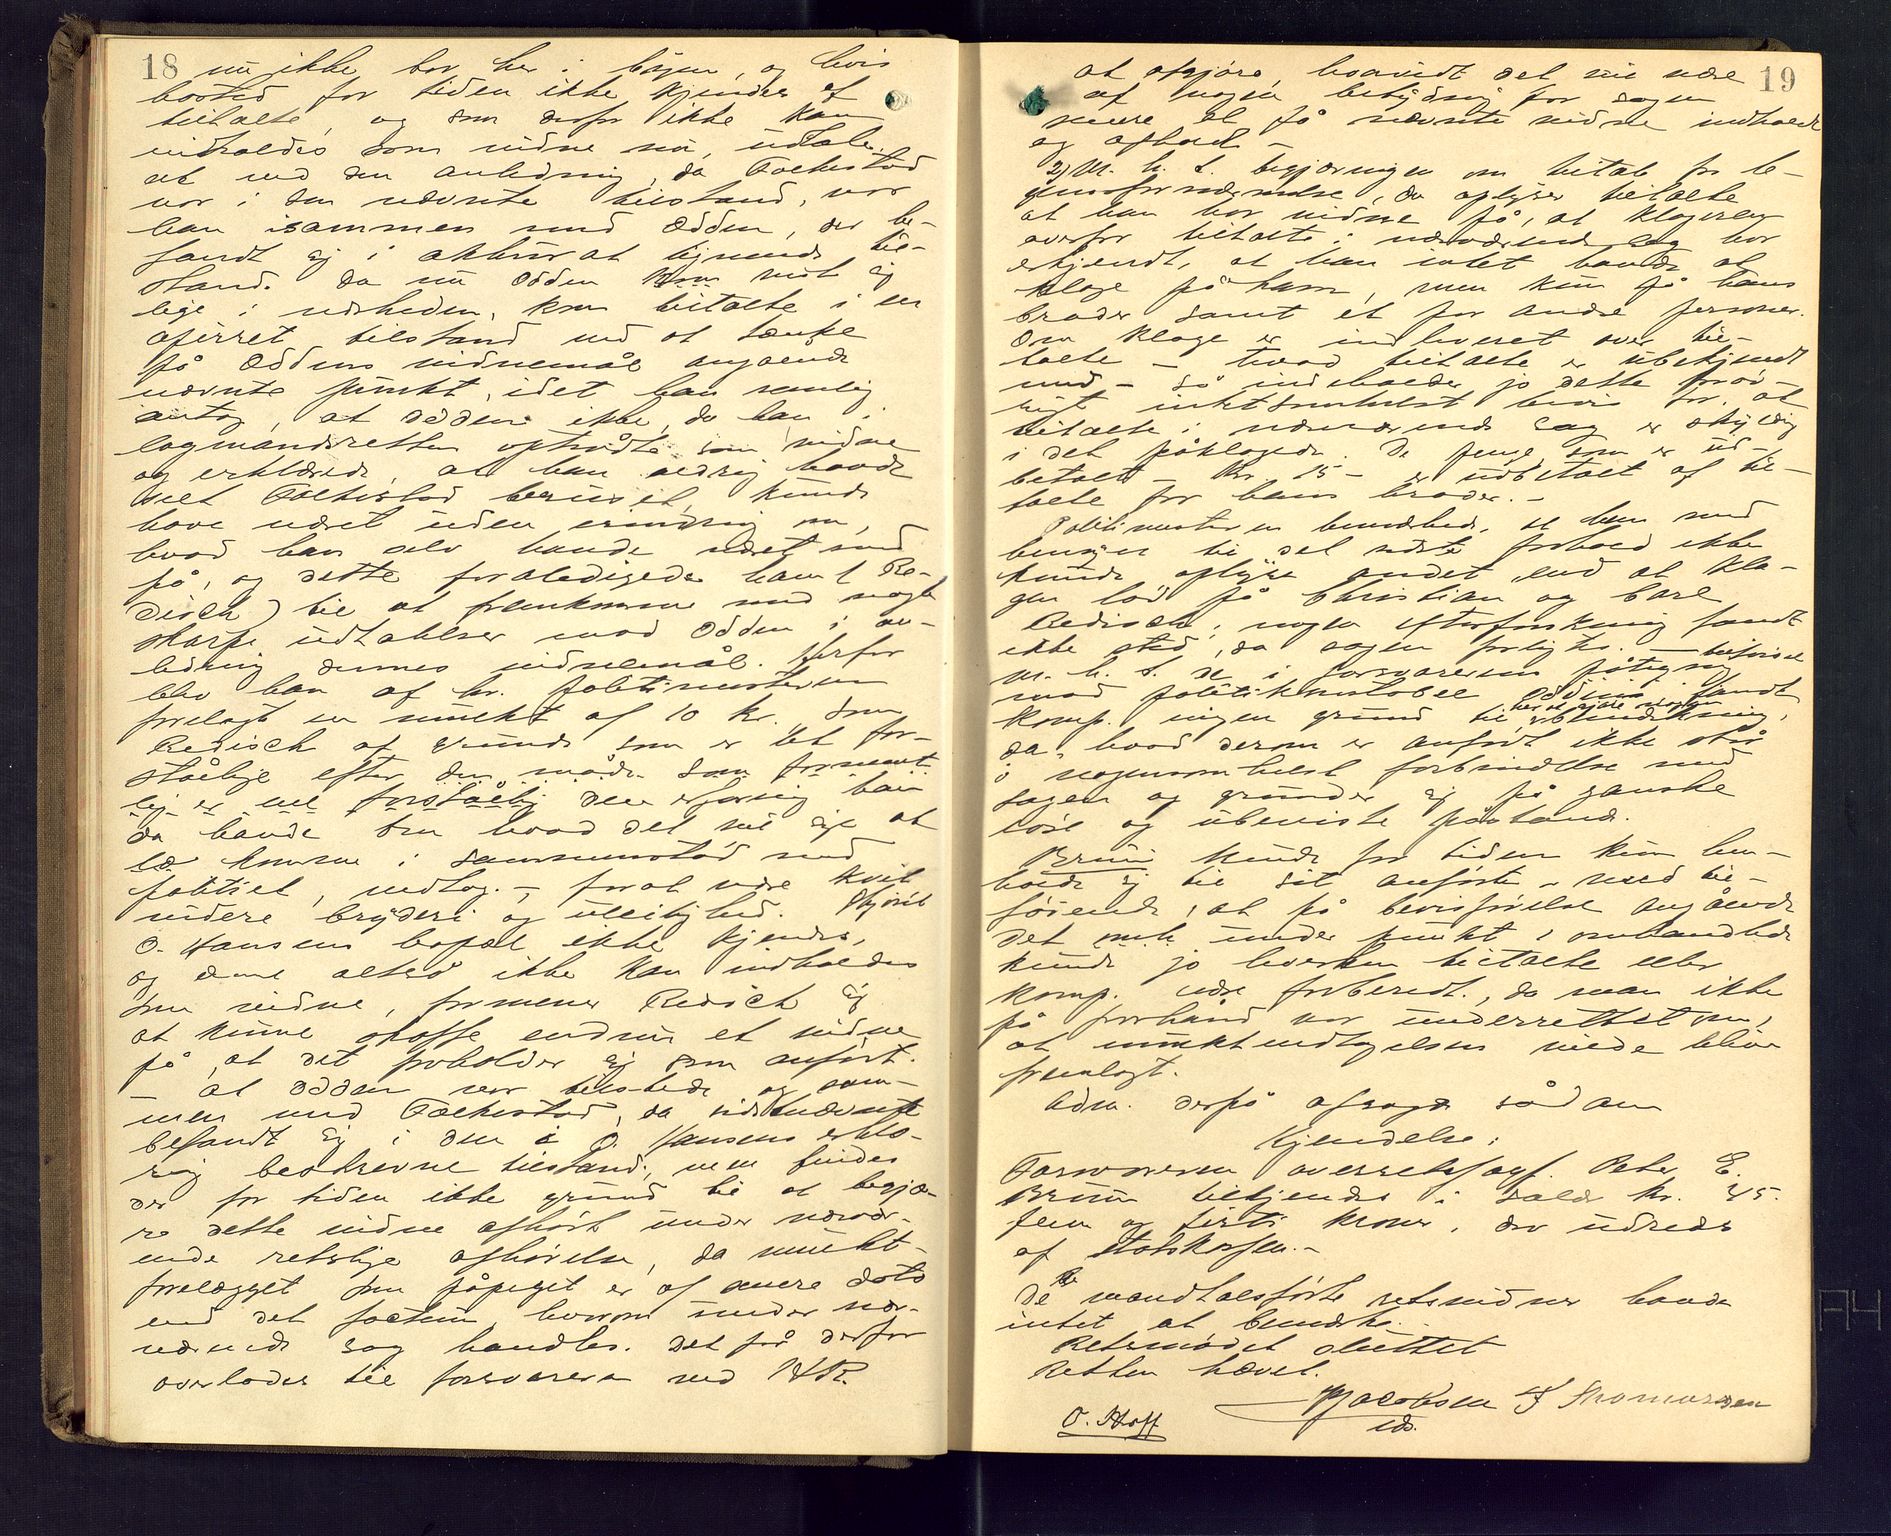 18
nu ikke bor her i byen, og hvis
bosted for tiden ikke kjendes af
tiltalte, og som derfor ikke kan
indkaldes som vidne nu, udtale
at ved den anledning, da Folkestad
var i den nævnte tilstand, var
han isammen med Odden, der be-
fandt sig i akkurat lignende til-
stand. Da nu Odden kom mot sig
lige i nærheden, kom tiltalte i en
opirret tilstand ved at tænke
på Oddens vidnemål angående
nævnte punkt, idet han nemlig
antog, at Odden ikke, da han i
lagmandsretten optrådte som vidne
og erklærede, at han aldrig havde
set Folkestad beruset, kunde
have været uden erindring om,
hvad han selv havde været med
på, og dette foraledigede ham (Re-
disch) til at fremkomme med nogle
skarpe udtalelser mod Odden i an-
ledning dennes vidnemål. Herfor
blev han af hr. politimesteren
forelagt en mulkt af 10 kr. som
Redisch af grunde som er let for-
ståelige efter den måde som forment-
lig er vel forståelig den erfaring han
da havde om hvad det vil sige at
komme i sammenstød med
politiet, vedtog. – forat være kvit
videre bryderi og uleilighed.
O. Hansens bopæl ikke kjendes,
og denne altså ikke kan indkaldes
som vidne, formener Redisch sig
at kunne skaffe endnu et vidne
på, at det forholder sig som anført.
– at Odden var tilstede og sam-
men med Folkestad, da sidstnævnte
befandt sig i den i O. Hansens erklæ-
ring beskrevne tilstand; men findes
der for tiden ikke grund til at begjæ-
re dette vidne afhørt under nærvær-
ende retslige afhørelse, da mulkt-
forelægget som påpeget er af anere dato
end det factum, hvorom under nær-
værende sag handles. Det får derfor
overlades til forsvareren ved H.R.
19
at afgjøre, hvorvidt det vil være
af nogen betydning for sagen
mere at få nævnte vidne indkaldt
og afhørt –
2) M. h. t. begjæringen om betalt for le-
gemsfornærmelse, da oplyser tiltalte
at han har vidne på, at klageren
overfor tiltalte i nærværende sag har
erkjendt, at han intet havde at
klage på ham, men kun på hans
broder samt et par andre personer.
Om klage er indleveret over til-
talte – hvad tiltalte er ubekjendt
med – så indeholder jo dette forøv-
rigt intetsomhelst bevis for, at
tiltalte i nærværende sag er skyldig
i det påklagede. De penge, som er ud-
betalt – kr. 15 – er udbetalt af til-
talte for hans broder. –
Politimesteren bemærkede, at han med
hensyn til det sidste forhold ikke
kunde oplyse andet, end at kla-
gen lød på Christian og Carl
Redisch; nogen efterforskning fandt
ikke sted, da sagen forligtes. –
M. h. t. de i forsvarerens påtegning
mod politikonstabel Odden, fandt
komp. ingen grund til bemærkning,
da, hvad derom er anført ikke står
i nogensomhelst forbindelse med
sagen og grunder sig på ganske
løse og ubeviste påstande.
Bruun kunde for tiden kun hen-
holde sig til sit anførte – med til-
føiende, at på bevisførelse angående
det m.h. under punkt 1 omhandlede
kunde jo hverken tiltalte eller
komp. være forberedt, da man ikke
på forhånd var underrettet om,
at mulktvedtagelsen vilde blive
fremlagt.
Adm. derpå afsagde sådan
Kjendelse:
Forsvareren overretssagf. Peter E.
Bruun tilkjendes i salær kr. 45.
fem og firti kroner, der udredes
af statskassen. –
De mandtalsførte retsvidner havde
intet at bemærke.
Retsmødet sluttet
Retten hævet.
Jacobsen F Thomassen
O. Hoff cds.